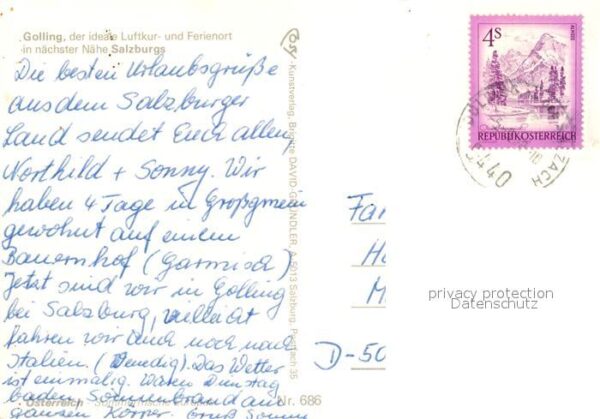 Golling, der ideale Luftkur- und Ferienort
in nächster Nähe Salzburgs
Die besten Urlaubsgrüße
aus dem Salzburger
Land sendet Euch allen,
Northild + Sonny. Wir
haben 4 Tage in Großgmein
gewohnt auf einem
Bauernhof (Garmisch)
Jetzt sind wir in Golling
bei Salzburg, vielleicht
fahren wir auch noch nach
Italien. (Venedig). Das Wetter
ist einmalig. Waren Dienstag
baden Sonnenbrand am
ganzen Körper. Gruß Sonny
Österreich
Nr. 686
Kunstverlag, Brigitte DAVID-GRÜNDLER, A-5013 Salzburg, Postfach 35
4S
REPUBLIK ÖSTERREICH
5440
Fam
D-50
privacy protection
Datenschutz